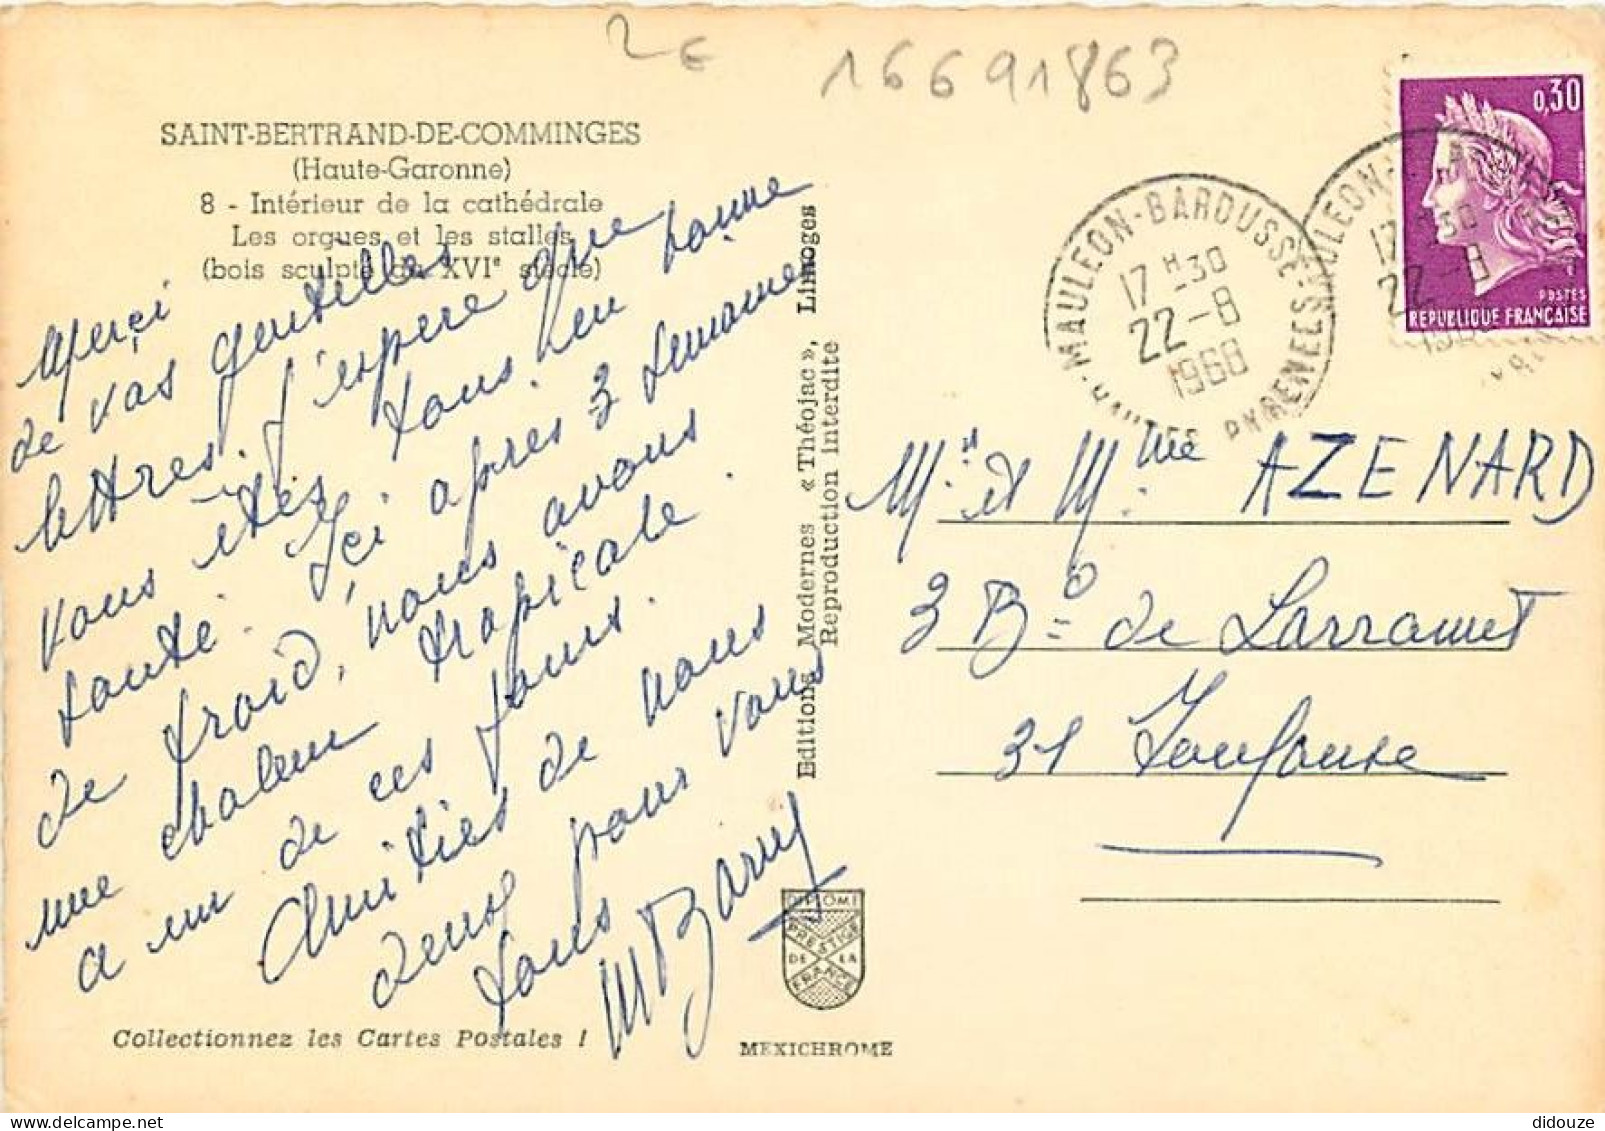 2€
16691863
SAINT-BERTRAND-DE-COMMINGES
(Haute-Garonne)
8 - Intérieur de la cathédrale
Les orgues et les stalles
(bois sculpté du XVIe siècle)
Merci
de vos gentilles
lettres. J'espère que
vous êtes tous en bonne
santé. Ici après 3 semaines
de froid, nous avons
une chaleur tropicale.
a un de ces jours.
Amitiés de nous
deux pour vous
tous
Collectionnez les Cartes Postales !
Editions Modernes « Théojac », Limoges
Reproduction interdite
DIPLOME
PRESTIGE
DE LA
FRANCE
MEXICHROME
MAULEON-BAROUSSE
17H-30
22-8
1968
HAUTES PYRENEES
0,30
POSTES
REPUBLIQUE FRANÇAISE
Mr et Mme AZENARD
3 Bd de Larramet
31 Toulouse
didouze